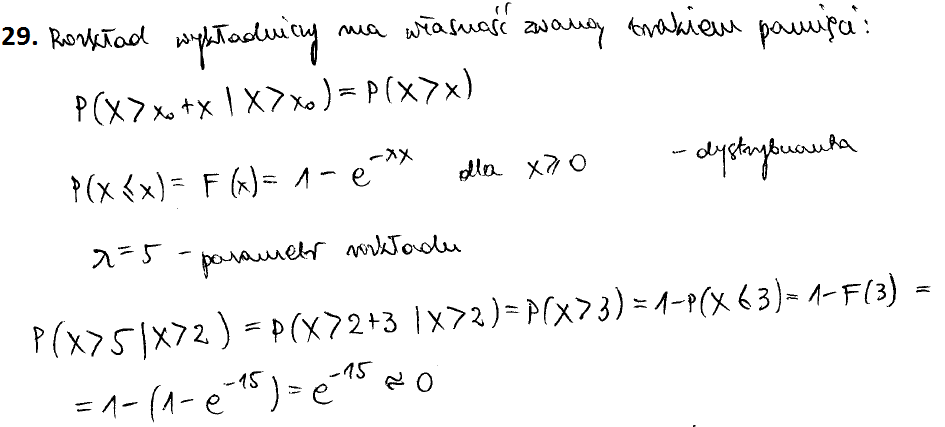 29. Rozkład wykładniczy ma własność zwaną brakiem pamięci:
P(X>x₀+x | X>x₀) = P(X>x)
P(X⩽x) = F(x) = 1 − e^(−λx) dla x⩾0 – dystrybuanta
λ=5 – parametr rozkładu
P(X>5|X>2) = P(X>2+3 | X>2) = P(X>3) = 1−P(X⩽3) = 1−F(3) =
= 1−(1−e^(−15)) = e^(−15) ≈ 0